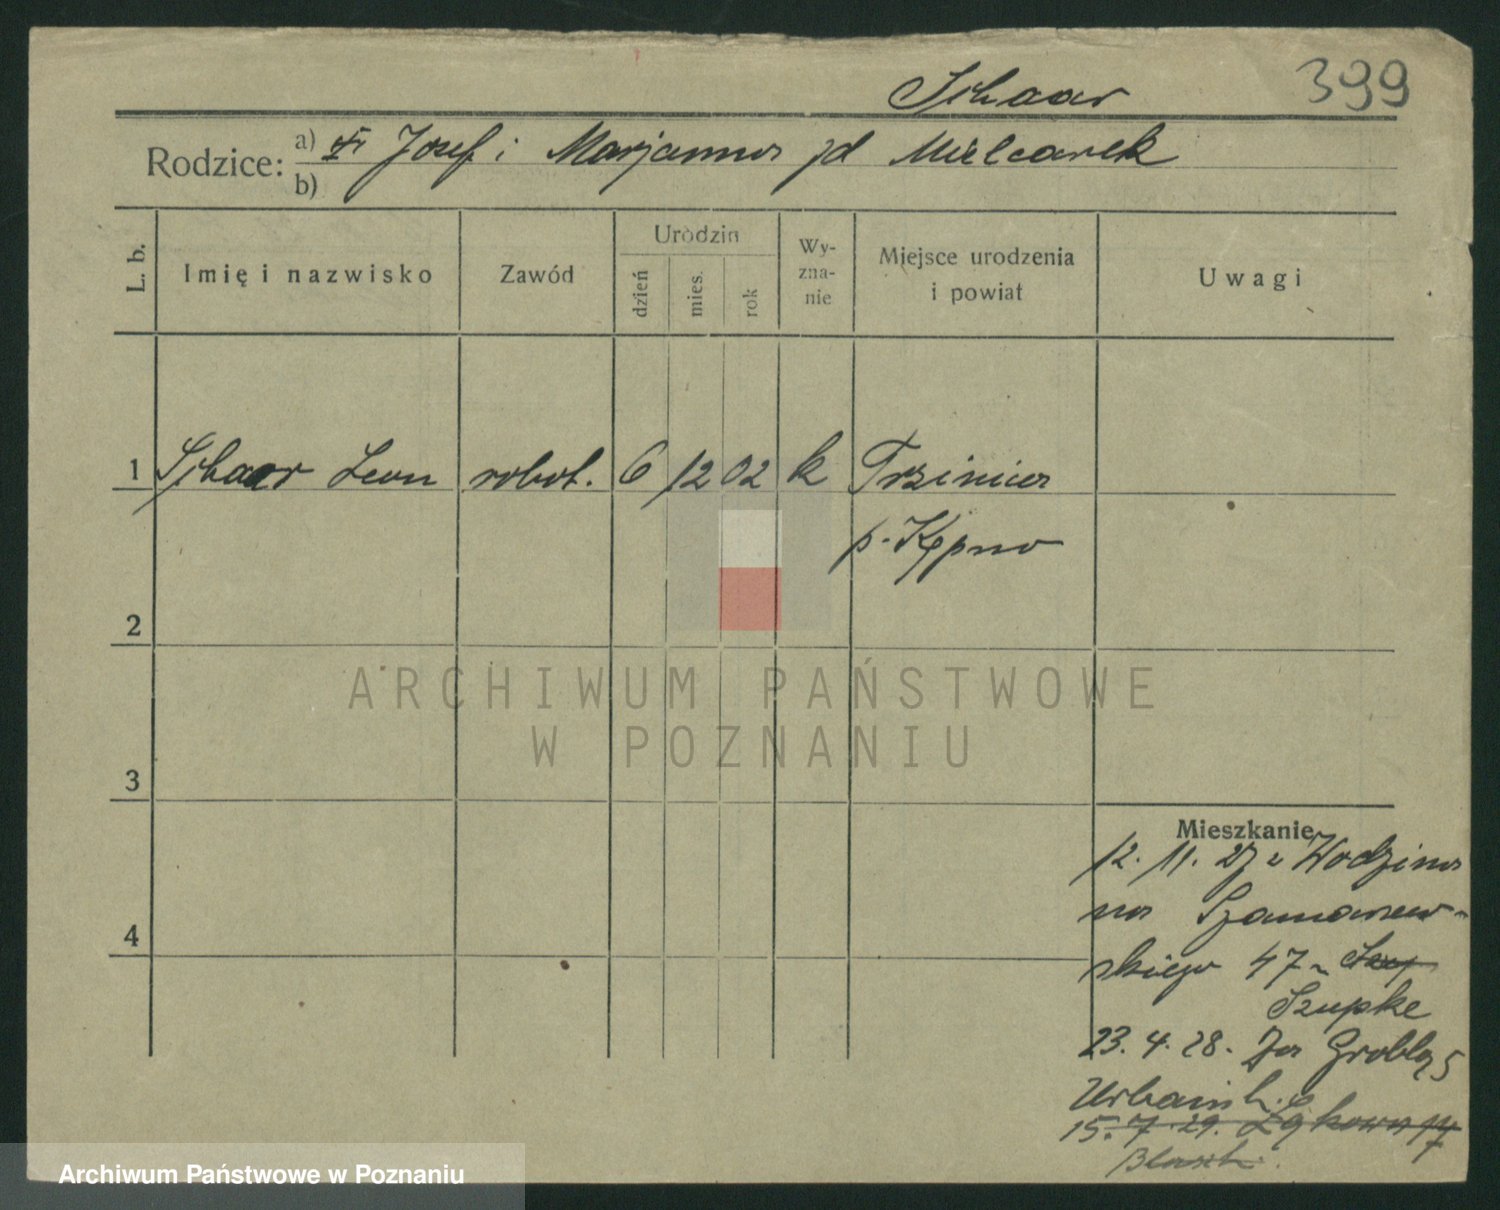 399
Schaar
Rodzice: a) Josef i Marjanna zd Mielcarek
b)
L. b. Imię i nazwisko Zawód Urodzin dzień mies. rok Wyznanie Miejsce urodzenia i powiat Uwagi
1 Schaar Leon robot. 6 12 02 k Trzinica
p. Kępno
2
3
4
Mieszkanie
12. 11. 27 z Wodzina
na Szamarzew-
skiego 47
Szupke
23. 4. 28. Za Groblą 5
Urbaniak
15. 7. 29. Łąkowa 17
ARCHIWUM PAŃSTWOWE
W POZNANIU
Archiwum Państwowe w Poznaniu